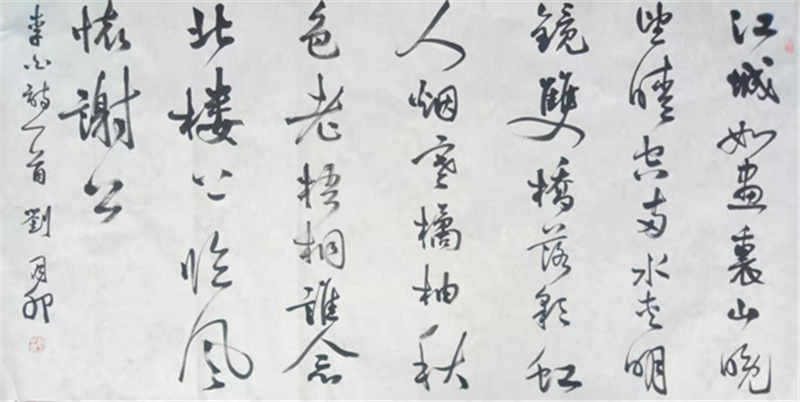 江城如畫裏山晚
望晴空两水夹明
鏡雙橋落彩虹
人烟寒橘柚秋
色老梧桐誰念
北楼上临风
懷謝公
李白詩一首 劉月卯